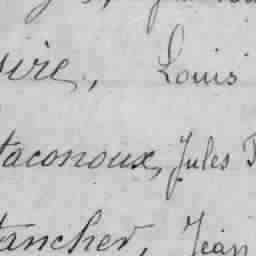 oire, Louis
taconoux, Jules
tancher, Jean